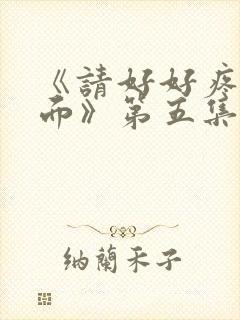 《請好好疼
而》第五集
納蘭禾子